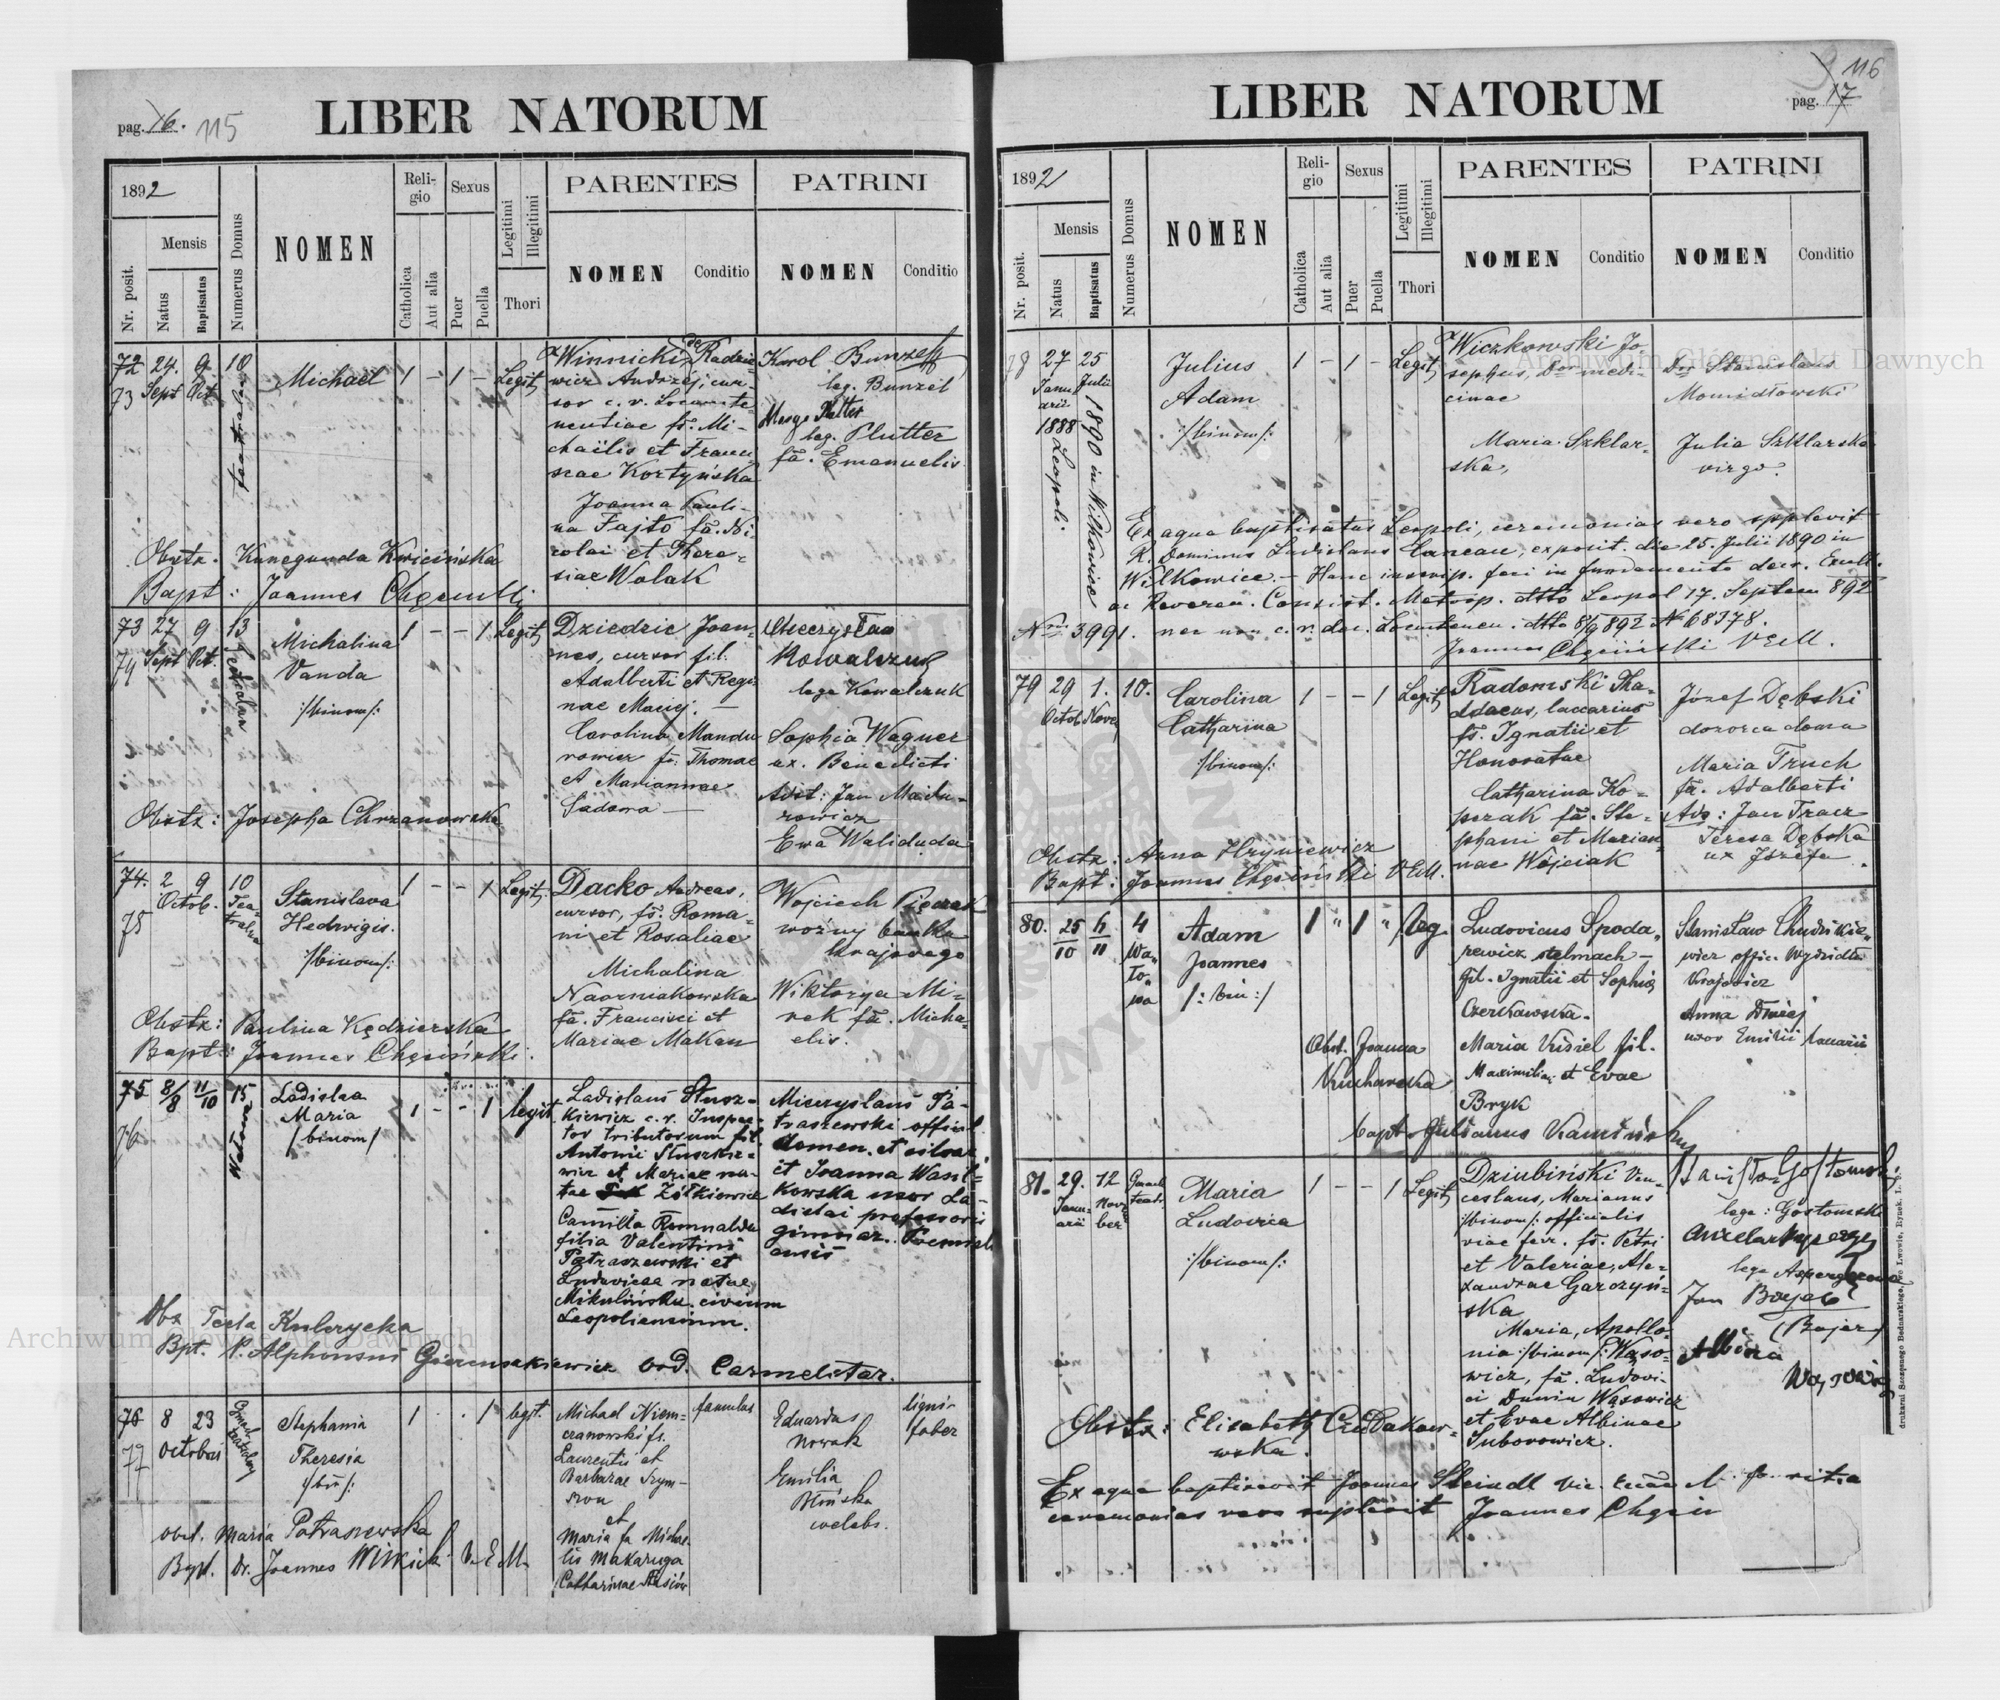 pag. 16. 115
LIBER NATORUM
1892
Nr. posit.
Mensis
Natus
Baptisatus
Numerus Domus
NOMEN
Religio
Catholica
Aut alia
Sexus
Puer
Puella
Legitimi
Illegitimi
Thori
PARENTES
NOMEN
Conditio
PATRINI
NOMEN
Conditio
72 24. 9. 10
73 Sept Oct
Michael
1 – 1 –
Legit
Winnicki de Radzie
wicz Andrzéj, cur-
sor c. r. Locumte-
nentiae fs. Mi-
chaëlis et Franci
scae Kortyńska
Joanna Pauli-
na Fajto fa. Ni-
colai et There-
siae Wolak
Karol Bunzel
leg. Bunzel
leg. Plutter
fa. Emanuelis
Obstx: Kunegunda Kwicińska
Bapt: Joannes Chgciński
73 27 9 13
74 Sept Oct.
Michalina
Vanda
:/binom/:
1 – – 1 Legit
Dziedzic Joan-
nes, cursor fil.
Adalberti et Regi-
nae Maciej. –
Carolina Mandu
rowicz fa. Thomae
et Mariannae
Sadowa –
Mieczysław
Kowalczuk
lege Kowalczuk
Sophia Wagner
ux. Benedicti
Adst: Jan Madu-
rowicz
Ewa Waliduda
Obstx: Josepha Chrzanowska
74. 2 9 10
75 Octob. Tea-
tralna
Stanislava
Hedwigis.
:/binom/:
1 – – 1 Legit
Dacko Andreas,
cursor, fs. Roma-
ni et Rosaliae
Michalina
Naorniakowska
fa. Francisci et
Mariae Makan
Wojciech Pięczak
woźny banku
krajowego
Wiktorya Mi-
rek fa. Micha-
elis.
Obstx: Paulina Kędzierska
Bapt: Joannes Chgciński.
75 8/8 11/10 15
76
Ladislaa
Maria
/binom/
1 – – 1 legit
Ladislaus Stusz-
kiewicz c. r. Inspec-
tor tributorum fil.
Antonii Stuszkie-
wicz et Mariae na-
tae Żółkiewicz
Camilla Romualda
filia Valentini
Patraszewski et
Ludovicae natae
Mikulińska civium
Leopoliensium.
Miecyslaus Pa-
traszewski offical
domen. et silvar.
et Joanna Wasil-
kowska uxor La-
dislai professoris
gimnaz. Premisl
ensis
Obx Tecla Kulczycka
Bpt. P. Alphonsus ord. Carmelitar.
76 8 23
77 Octobris
Stephania
Theresia
:/bin/:
1 . . 1 legit.
Michael Niem-
czanowski fs.
Laurentii et
Barbarae Szym-
szon
et
Maria fa Micha-
lis Makaruga
Catharinae Stasiów
famulus
Eduardus
Nowak
Emilia
Blińska
coelebs.
lignir
faber
obst. Maria Patraszewska
Bapt. Dr. Joannes V. E M.
pag. 17 116
LIBER NATORUM
1892
Nr. posit.
Mensis
Natus
Baptisatus
Numerus Domus
NOMEN
Religio
Catholica
Aut alia
Sexus
Puer
Puella
Legitimi
Illegitimi
Thori
PARENTES
NOMEN
Conditio
PATRINI
NOMEN
Conditio
78 27 25
Janu Julii
arii 1890 in Wilkowice
1888
Leopoli.
Julius
Adam
:/binom/:
1 – 1 – Legit
Wiczkowski Jo-
sephus, Dor medi-
cinae
Maria Szklar-
ska,
Dor Stanislaus
Momidłowski
Julia Szklarska
virgo.
Ex aqua baptisatus Leopoli, ceremonias vero supplevit
R. Dominus Ladislaus Caneau, exposit. die 25. Julii 1890 in
Wilkowice. – Hanc inscrip. feci in fundamento decr. Excell.
ac Reveren. Consist. Metrop. dtto Leopol 17. Septem 892
Nro 3991. nec non c. r. dec. Locumtenen. dtto 8/9 892 N 68378.
Joannes Chgciński VEM.
79 29 1. 10.
Octob Nove
Carolina
Catharina
:/binom/:
1 – – 1 Legit
Radomski Tha-
ddaeus, laccarius
fs. Ignatii et
Honoratae
Catharina Ko-
perak fa. Ste-
phani et Marian-
nae Wójciak
Józef Dębski
dozorca domu
Maria Truch
fa. Adalberti
Ads: Jan Tracz
Teresa Dębska
ux Józefa.
Obstx: Anna Hryniewicz
Bapt: Joannes Chgciński VEM.
80. 25/10 6/11 4
Wa-
to-
wa
Adam
Joannes
/: bin :/
1 " 1 " leg
Ludovicus Spoda-
rewicz stelmach –
fil. Ignatii et Sophia
Czerkawska.
Maria Vrisiel fil.
Maximilian et Evae
Bryk
Stanisław
offic. Wydziału
Krajowicz
Anna
uxor Emilii
Obst. Joanna
Kucharska
bapt. Julianus Kamiński
81. 29. 12
Janu- Novem
arii ber
Maria
Ludovica
:/binom/:
1 – – 1 Legit
Dziubiński Ven-
ceslaus, Marianus
:/binom/: officialis
viae ferr. fs. Petri
et Valeriae, Ale-
xandrae Garczyń-
ska
Maria, Apollo-
nia :/binom/: Wąso-
wicz, fa. Ludovi-
ci Dunin Wąsowicz
et Evae Albinae
Suborowicz.
Stanisław Gostomski
lege: Gostomski
lege Aspergerowa
Jan Bajer
(Bajer)
Albina
Wąsowicz
Obstx: Elisabeth
wska.
Ex aqua baptisavit Joannes Steindl
ceremonias vero supplevit Joannes Chgciń
drukarni Szczęsnego Bednarskiego, we Lwowie, Rynek, L. 9.
Archiwum Główne Akt Dawnych
Archiwum Główne Akt Dawnych